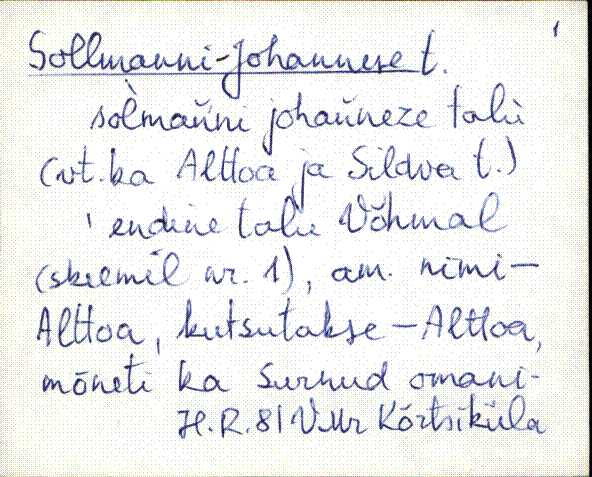 1
Sollmanni-Johannese t.
sòlmaňni johaňneze talu
(vt. ka Alttoa ja Sildva t.)
' endine talu Võhmal
(skeemil nr. 1), am. nimi -
Alttoa, kutsutakse - Alttoa,
mõneti ka Surnud omani-
H.R. 81 VMr Kõrtsiküla